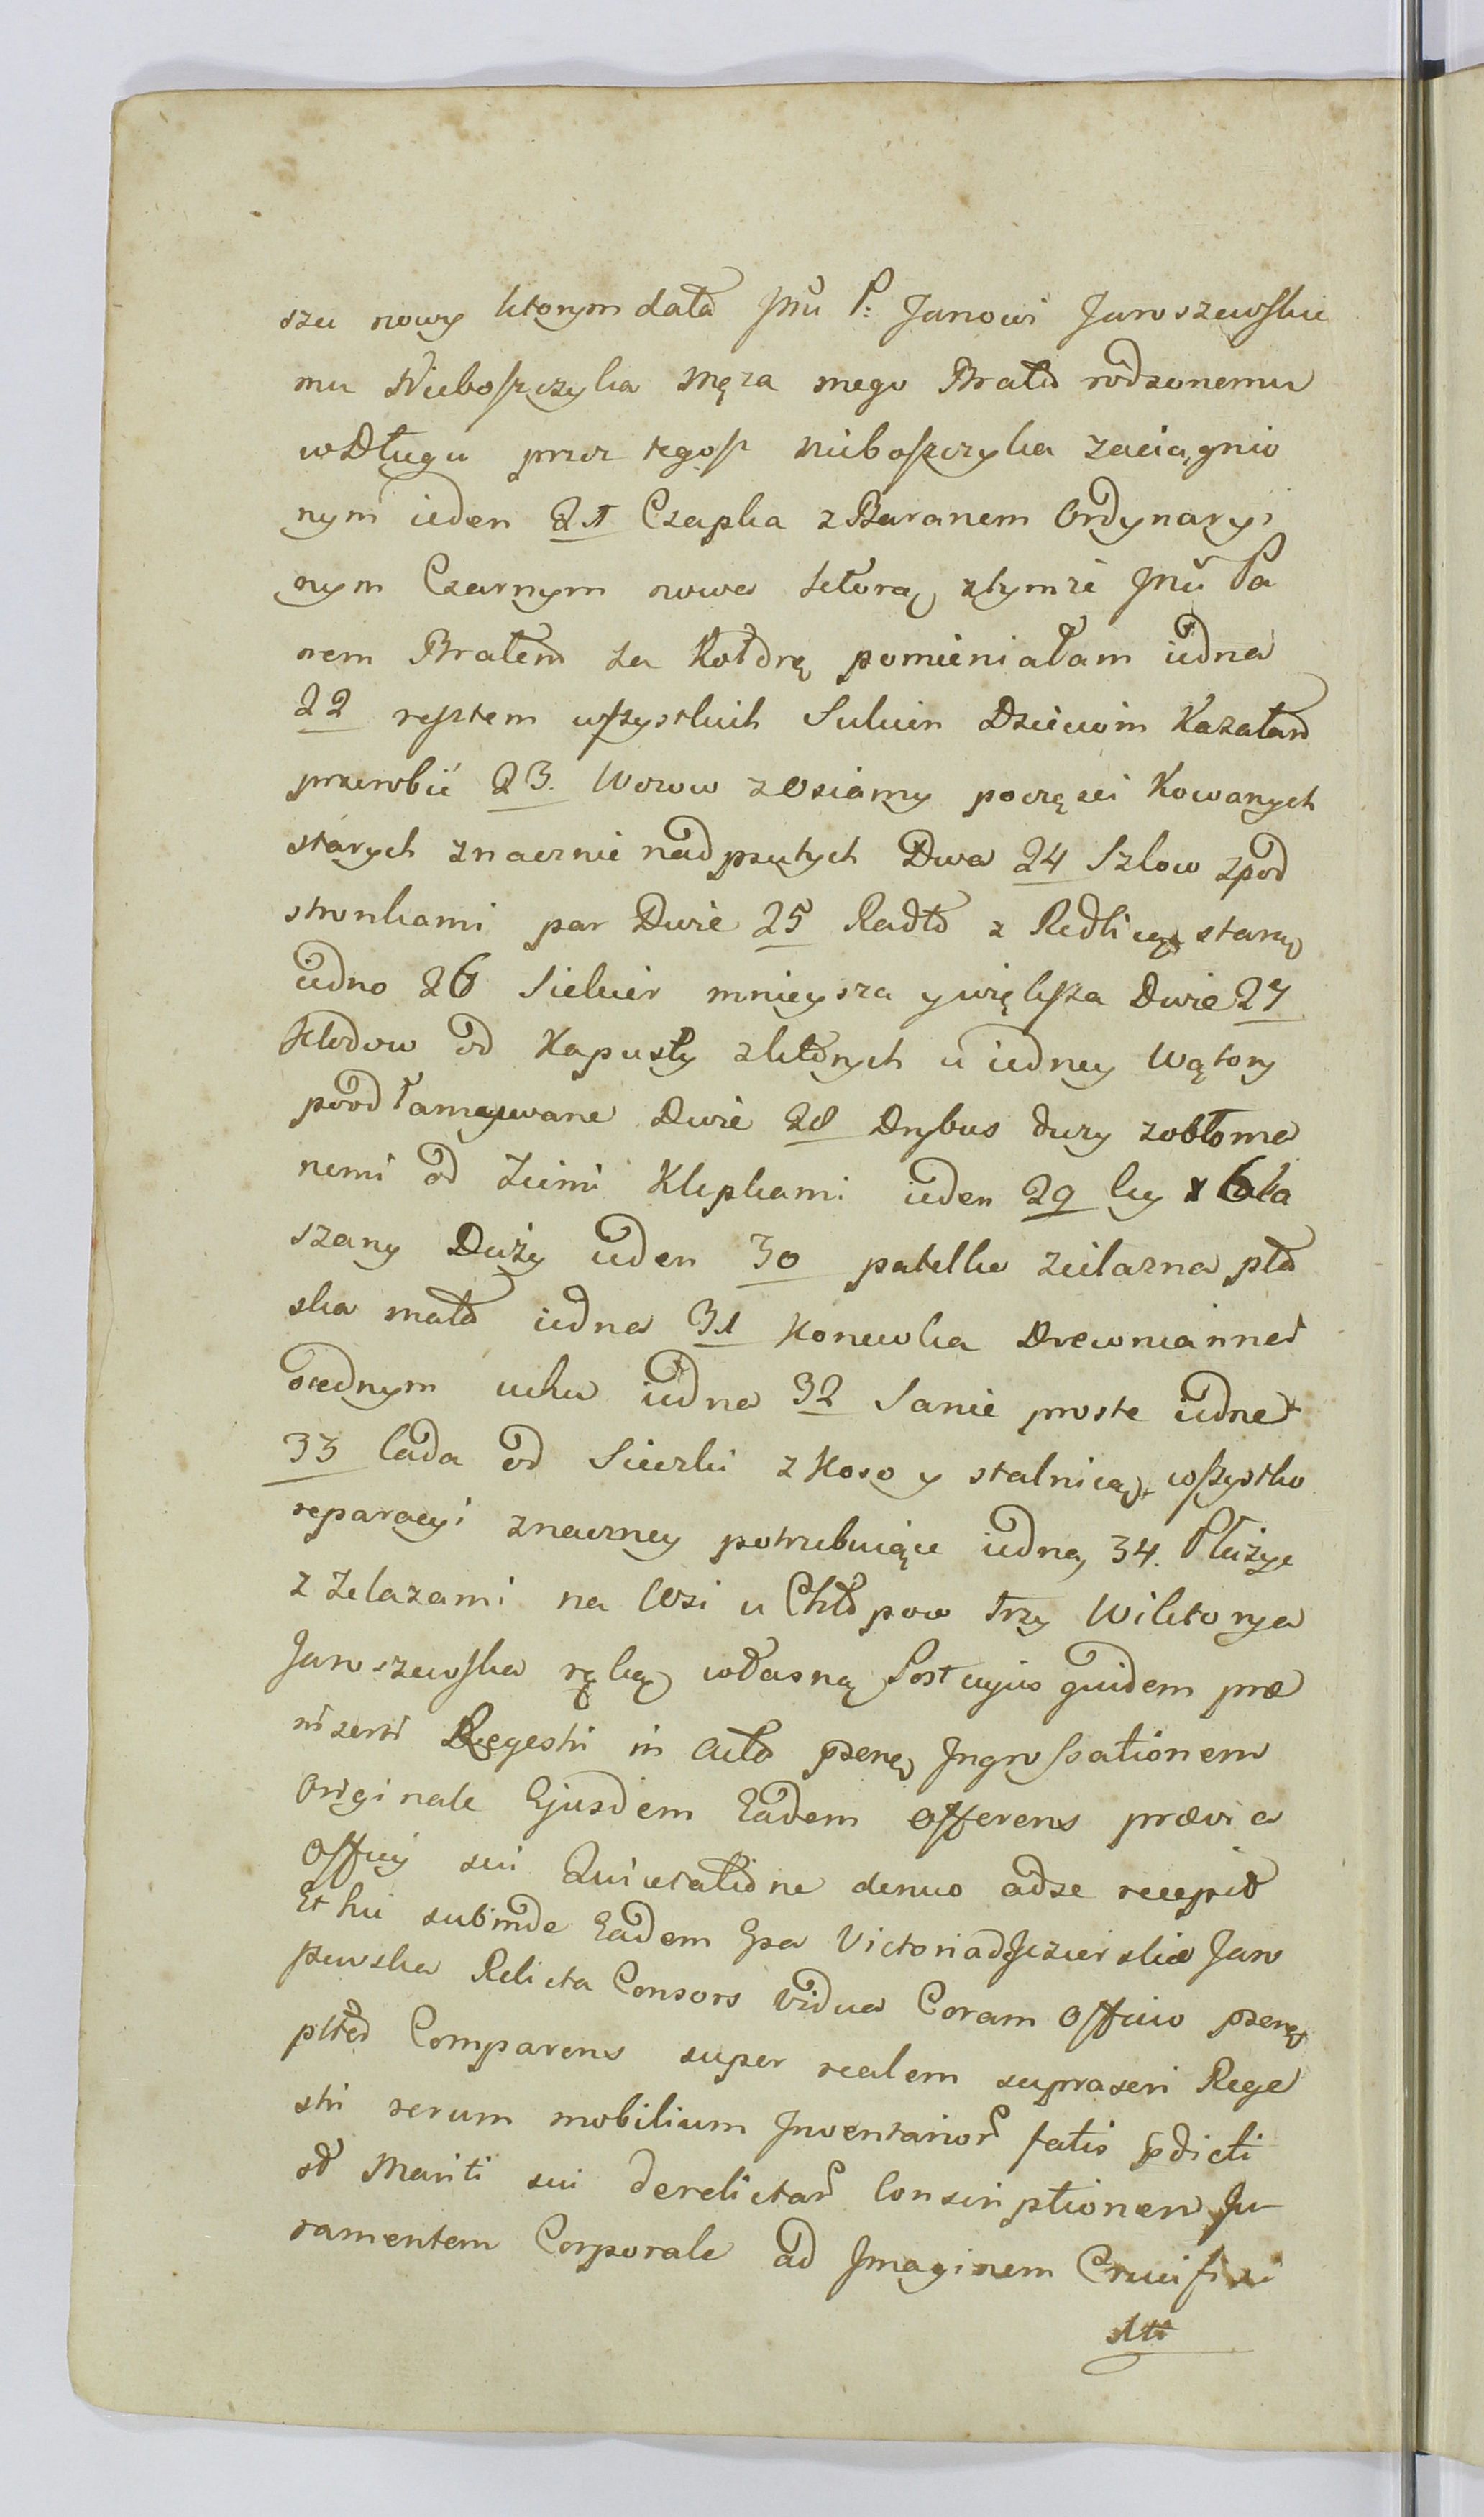 szu nowy ktorym dała Jmu P: Janowi Jaroszewskie
mu Nieboszczyka Męża mego Brata rodzonemu
w Długu przez tegosz nieboszczyka zaciągnio
nym ieden 21 Czapka z Baranem Ordynaryi
nym Czarnym nowa ktorą ztymże Jmu Pa
nem Bratem za Kołdrę pomieniałam iedna
22 resztem wszystkich Sukien Dzieciom Kazałam
przerobić 23. Wozow zosiamy poczęsci Kowanych
starych znacznie nadpsutych Dwa 24 Szlow zpod
stronkami par Dwie 25 Radło z Redlicą starą
iedno 26 Siekier mnieysza y większa Dwie 27
Kłodow od Kapusty zletnych u iedney Wątory
poodłamywane Dwie 28 Drybus duzy zobłoma
nemi od Ziemi Klepkami ieden 29 
szany Duży ieden 30 patelka zielazna pła
ska mała iedna 31 Konewka Drewnianna
oiednym uchu iedna 32 Sanie proste iedne
33 Lada od Sieczki z Koso y stalnicą, wszystko
reparacyi znaczney potrzebuiące iedną, 34. Płużyc
z Zelazami na Wsi u Chłopow trzy Wiktorya
Jaroszewska ręką własną Post cujus quidem præ
inserti Regestri in Acta psentia Ingrossationem
Originale Ejusdem Eadem Offerens prævia
Officij sui Quietatione denuo adse recepit
Et hic subinde Eadem Gsa Victoria de Jezierskie Jaro
szewska Relicta Consors Vidua Coram Officio psenti
pltr Comparens super realem supraseri Rege
stri rerum mobilium Inventarior fatis pdicti
od Mariti sui derelictar Conscriptionem Ju
ramentem Corporale ad Imaginem Crucifixi